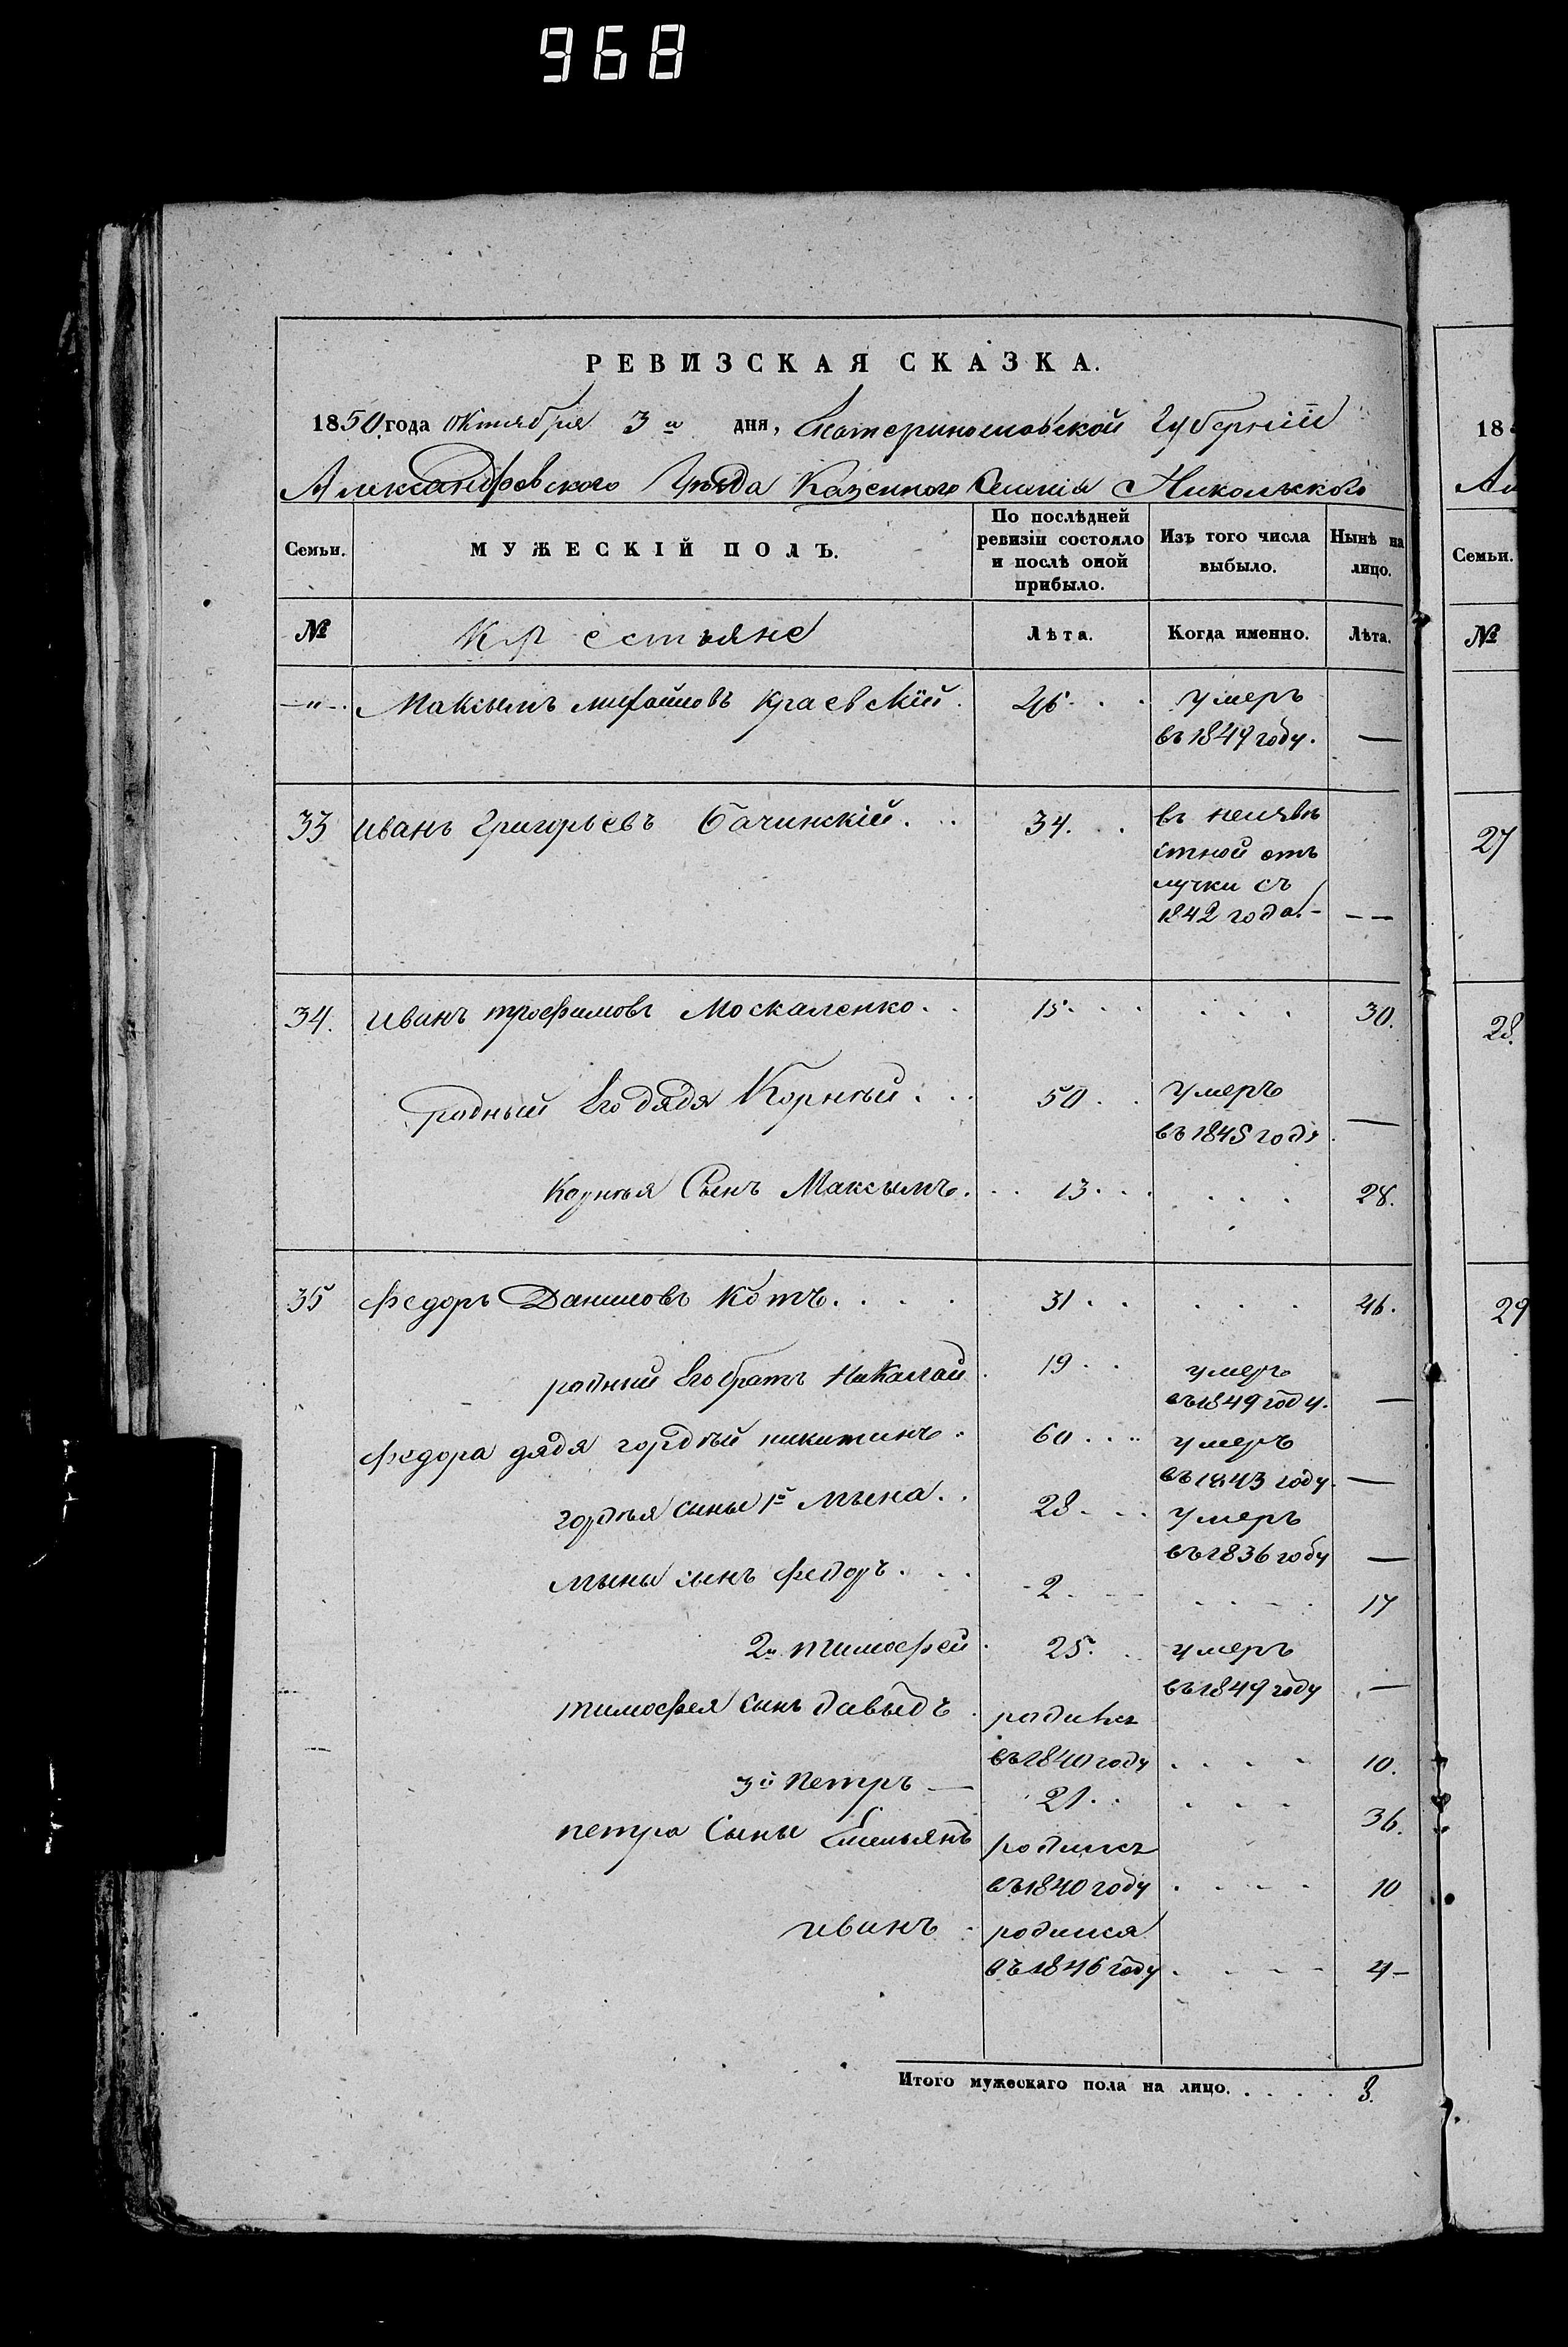 968
РЕВИЗСКАЯ СКАЗКА.
1850 года октября 3го дня, Екатеринославской Губерніи
Александровского Уѣзда Казенного Селенія Никольского
Семьи. МУЖЕСКІЙ ПОЛЪ. По послѣдней ревизіи состояло и послѣ оной прибыло. Изъ того числа выбыло. Нынѣ на лицо.
№ Крестьяне Лѣта. Когда именно. Лѣта.
—"—. Максымъ михайловъ краевскій. 46. . . умеръ
въ 1849 году. —
33 иванъ григорьевъ бачинскій. . . 34. . въ неизвѣ
стной отъ
лучки съ
1842 года. — — —
34. иванъ трофимовъ Москаленко. . 15. . . . . . 30.
родный Его дядя Корнѣй. . . 50. . умеръ
въ 1845 годѵ. —
Корнѣя Сынъ Максымъ. . . 13. . . . . . 28.
35 федоръ Даниловъ Котъ. . . . 31. . . . . 46.
родный Его братъ Николай. 19. . умеръ
въ 1849 году. —
федора дядя гордѣй никитинъ. 60. . . умеръ
въ 1843 году. —
гордѣя сыны 1й мына. . 28. . . умеръ
въ 1836 году —
мыны сынъ федоръ. . . 2. . . . . 17
2й тимофей. 25. . умеръ
въ 1849 году. —
тимофея сынъ давыдъ. родился
въ 1840 году. . . . 10.
3й петръ — 21. . . . . 36.
петра Сыны Емельянъ родился
въ 1840 году. . . . 10
иванъ. родился
въ 1846 году. . . . 4 —
Итого мужескаго пола на лицо. . . . . 8.
18
Ал
Семьи.
№
27
28.
29